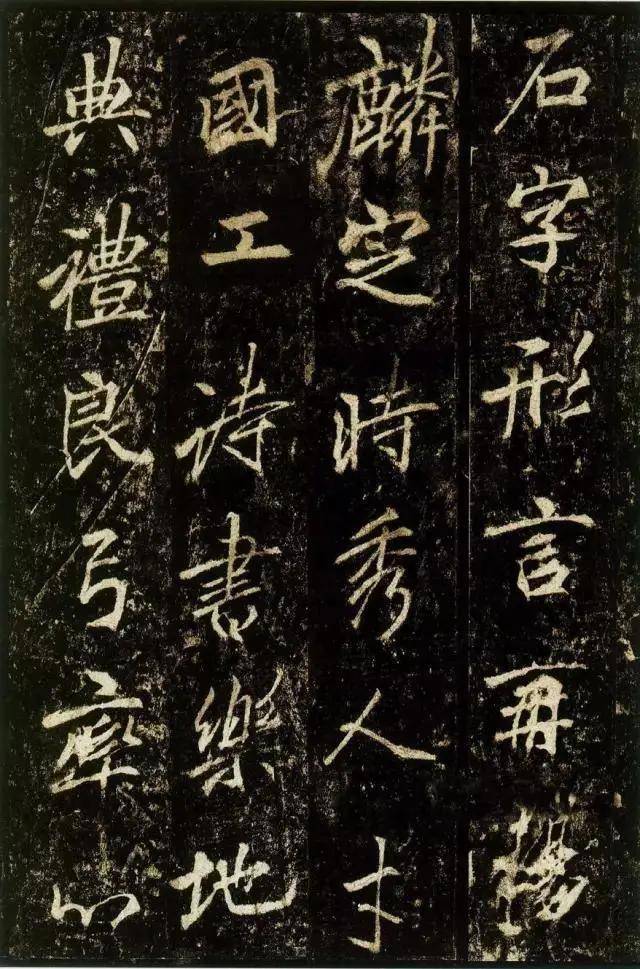 石字形言再揚
麟定時秀人才
國工詩書樂地
典禮良弓